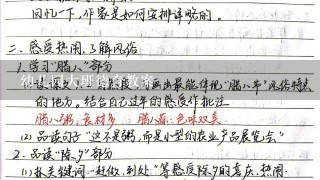 回忆一下，作家是如何安排详略的。
二、感受热闹，了解风俗
1. 学习“腊八”部分
幼儿园大班德育教案
画出最能体现“腊八节”风俗特点
的地方。结合自己过年的感受作批注
腊八粥:食材多 腊八蒜:色味双美
(2) 品读句子“这不是粥，而是小型的农业产品展览会”
2. 品读“除夕”部分
(1) 抓关键词“赶做、到处”等感受除夕的喜庆、热闹